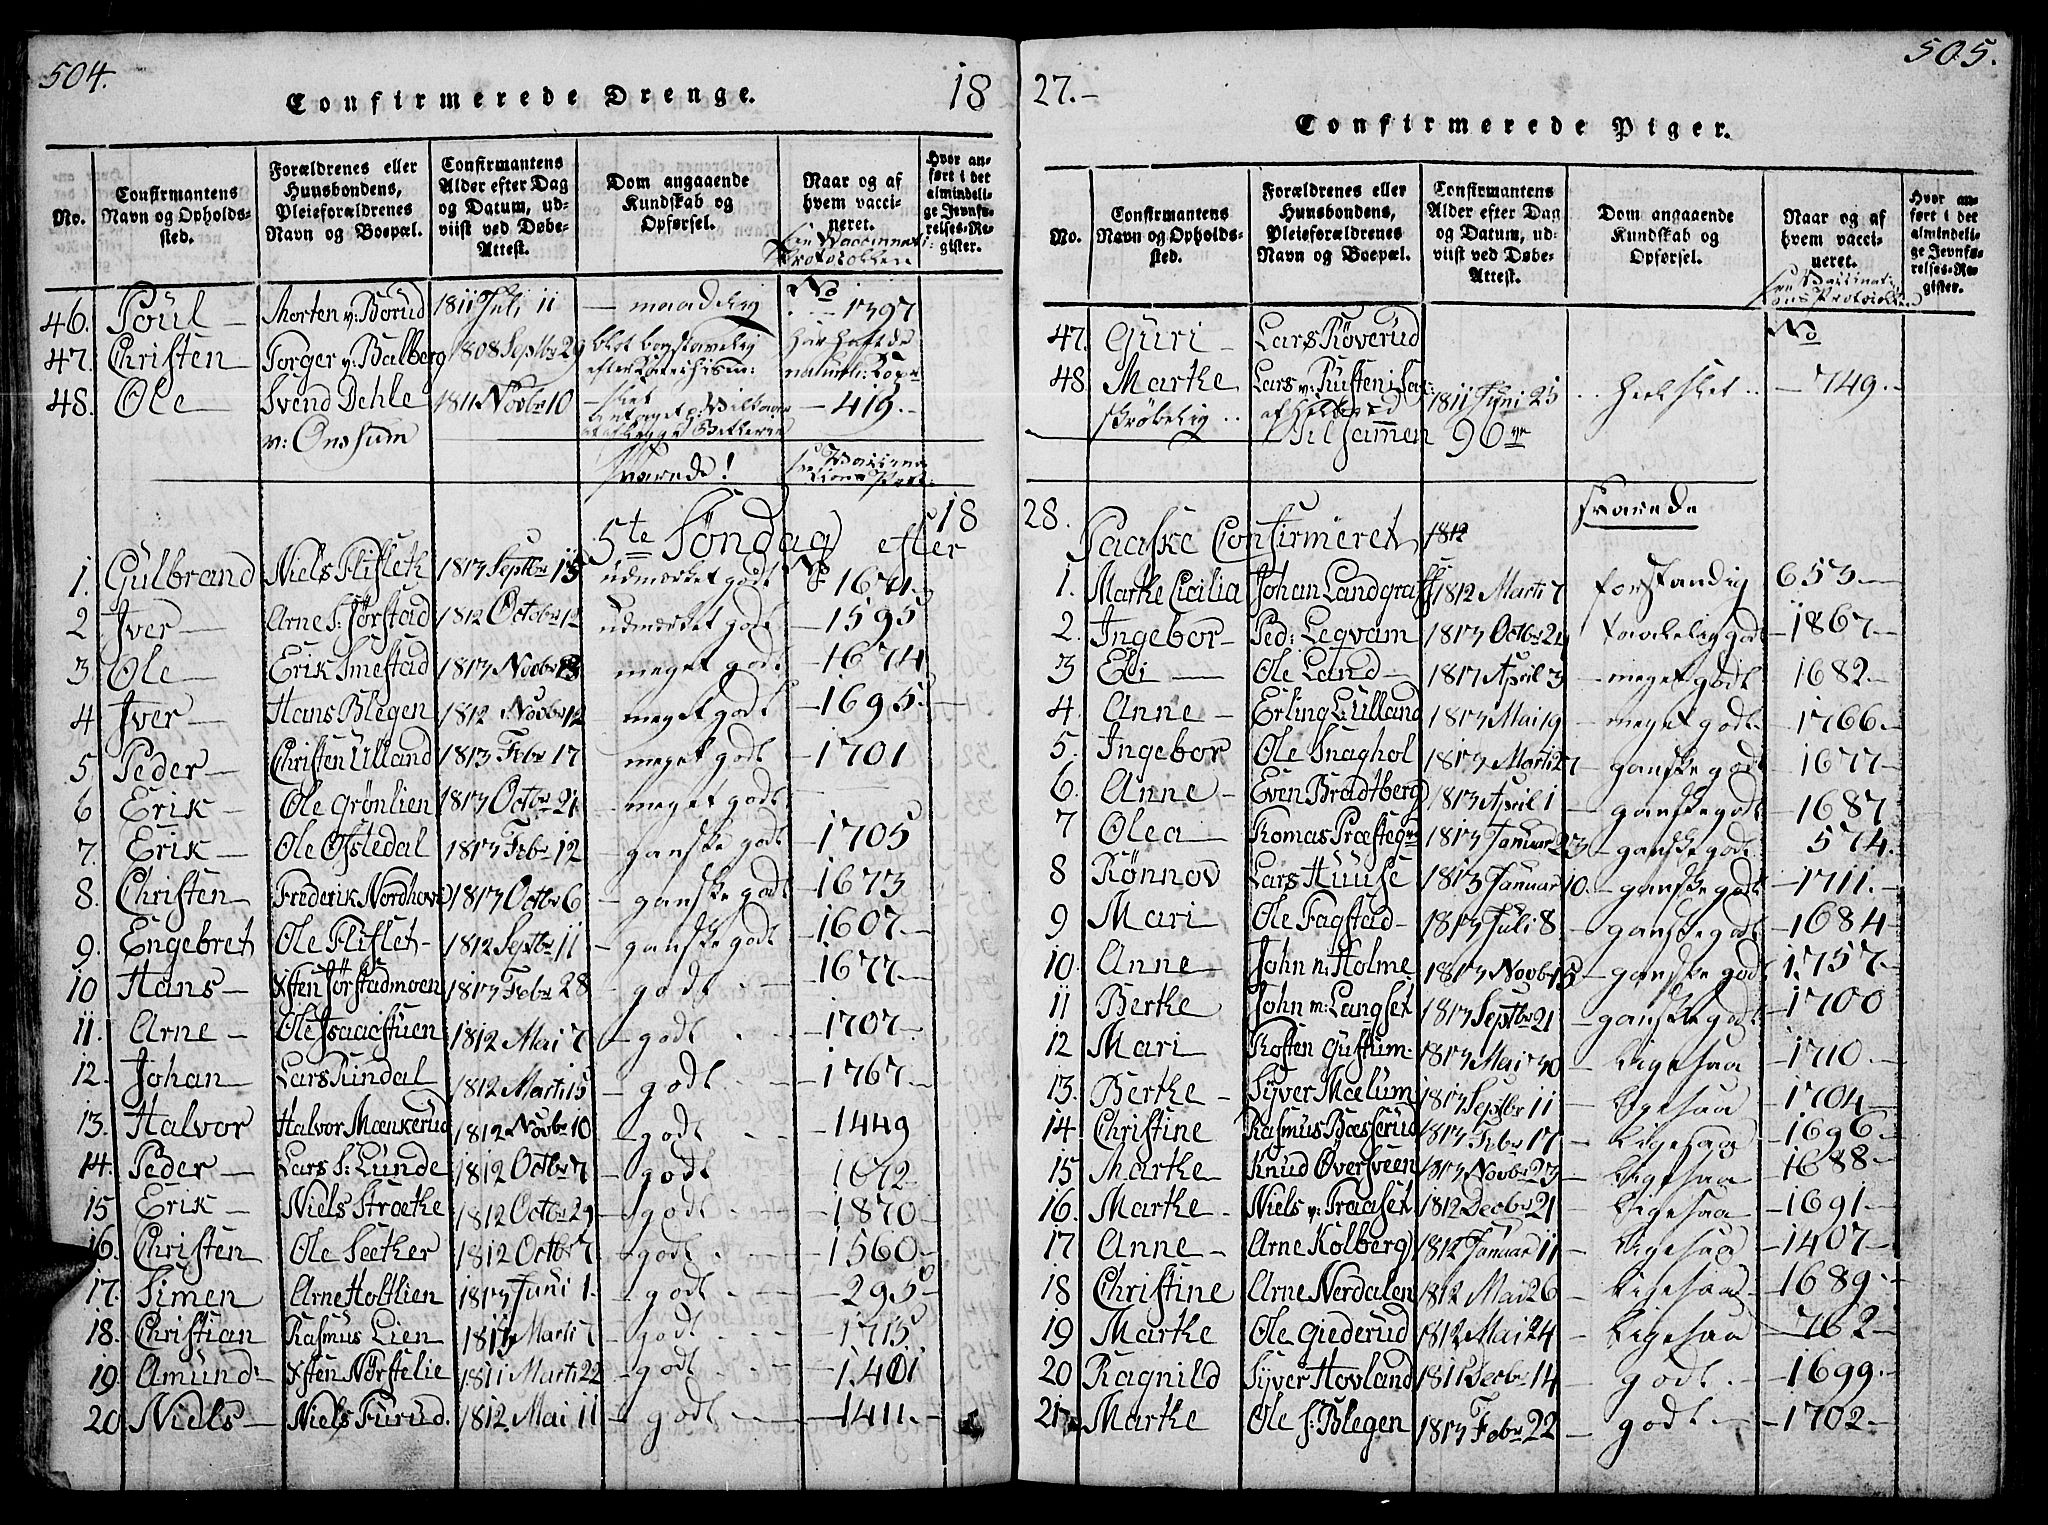 504.
Confirmerede Drenge.
18
No.
Confirmantens Navn og Opholdssted.
Forældrenes eller Huusbondens, Pleieforældrenes Navn og Boepæl.
Confirmantens Alder efter Dag og Datum, udviist ved Døbe-Attest.
Dom angaaende Kundskab og Opførsel.
Naar og af hvem vaccineret.
Hvor anført i det almindelige Jevnførelses-Register.
No
46. Poul — Morten v: Borud 1811 Juli 11 — maadelig — 1397
47. Christen Torger v: Balberg 1808 Septbr 29 blot bogstavelig har havde
48. Ole Svend Dehle 1811 Novbr 10 — 419.—
v: Onssum
svarede!
18
5te Søndag efter
No
1. Gulbrand Niels Flifleth 1813 Septbr 15 udmærket godt 1671.—
2 Iver — Arne S: Jørstad 1812 Octobr 12 udmærket godt — 1595
3 Ole Erik Smestad 1813 Novbr meget godt — 1674
4 Iver — Hans Blegen 1812 Novbr 12 meget godt — 1695.—
5 Peder — Christen Ulland 1813 Febr 17 meget godt — 1701
6 Erik — Ole Grønlien 1813 Octbr 21 meget godt
7. Erik — Ole Ofsledal 1813 Febr 12 — ganske godt — 1705
8. Christen Frederik Nordhove 1813 Octbr 6 — ganske godt — 1673
9. Engebret Ole Fliflet — 1812 Septbr 11 — ganske godt — 1607.—
10 Hans — Xsten Jørstadmoen 1813 Febr 28 — godt — 1677.—
11. Arne — Ole Isaacstuen 1812 Mai 7 — godt — 1707.—
12. Johan Lars Rindal 1812 Marti 15 — godt — 1767.—
13. Halvor Halvor Mænkerud 1812 Novbr 10 — godt — 1449
14. Peder — Lars S: Lunde 1812 Octbr 7 — godt 1672
15 Erik — Niels Stræthe 1812 Octbr 29 — godt — 1870
16. Christen Ole Seether 1812 Octbr 7 — godt — 1560.—
17. Simen Arne Holtlien 1813 Juni 1. — godt — 295.—
18. Christian Rasmus Lien 1813 Marti 7 — godt — 1715
19 Amund Xsten Nørstelie 1811 Marti 22 — godt — 1401
20 Niels — Niels Furud. 1812 Mai 11 — godt — 1411.—
505.
27.—
Confirmerede Piger.
No.
Confirmantens Navn og Opholdssted.
Forældrenes eller Huusbondens, Pleieforældrenes Navn og Boepæl.
Confirmantens Alder efter Dag og Datum, udviist ved Døbe-Attest.
Dom angaaende Kundskab og Opførsel.
Naar og af hvem vaccineret.
Hvor anført i det almindelige Jevnførelses-Register.
No
47. Guri — Lars Røverud
48. Marthe Lars v: Rusten 1811 Juni 25 heel slet — 749.—
skrøbelig
Tilsammen 96
28.
svarede
Paaske Confirmeret 1812
1. Marthe Cicilia Johan Landgraff 1812 Marti 7 forstandig 653.—
2. Ingebor — Ped: Legvam 1813 Octbr 21 godt — 1867.—
3 Eli — Ole Land — 1817 April 3 — meget godt 1682.—
4. Anne — Erling Lulland 1813 Mai 19 — meget godt — 1766.—
5. Ingebor Ole Snaghol 1813 Marti 27 — ganske godt — 1677.—
6. Anne — Even Bradtberg 1813 April 1 — ganske godt — 1687
7 Olea — Tomas 1813 Januar 23 — ganske godt 574.
8 Rønnov Lars Huuse 1813 Januar 10. — ganske godt — 1711.—
9 Mari Ole Fagstad — 1813 Juli 8 — ganske godt — 1684
10. Anne — John n: Holme 1813 Novbr 15 — ganske godt 1757.—
11 Berthe John m: Langset 1813 Septbr 21 — ganske godt — 1700
12 Mari Kosten Gustum — 1813 Mai 30 — ligesaa — 1710.—
13. Berthe — Syver Mælum 1813 Septbr 11 — ligesaa — 1704
14 Christine Rasmus Bæsserud 1813 Febr 17 — ligesaa — 1696
15 Marthe Knud Øversveen 1813 Novbr 23 — ligesaa — 1688.—
16. Marthe Niels v: Traaset 1812 Decbr 21 — ligesaa — 1691.—
17 Anne — Arne Kolberg 1812 Januar 11 — ligesaa — 1407.—
18 Christine Arne Nerdalen 1812 Mai 26 — ligesaa — 1689.—
19 Marthe Ole Giederud 1812 Mai 24 — ligesaa — 762
20 Ragnild Syver Hovland 1811 Decbr 14 — godt. — 1699.—
21 Marthe Ole S: Blegen 1813 Febr 22 — godt — 1702.—